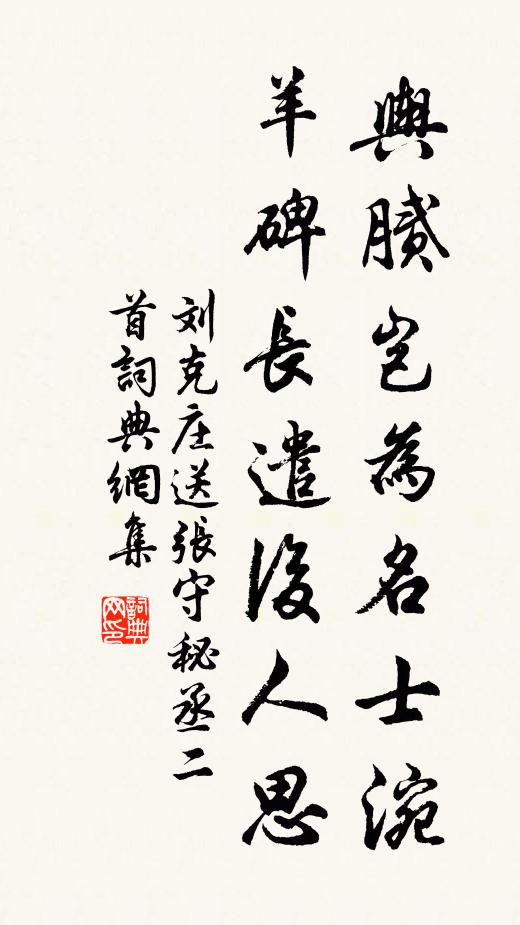 輿膩豈為名士涴
羊碑長遣後人思
刘克庄送張守秘丞二
首詞典網集
詞典网印